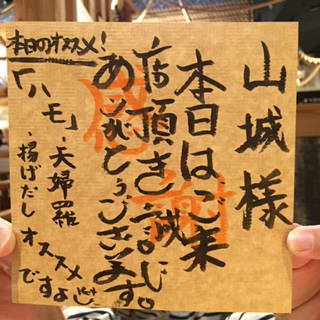 山城様
本日はご来
店頂き誠に
ありがとうございます。
本日のオススメ!
「ハモ」・天婦羅
・揚げだし
オススメ
ですよ
感謝